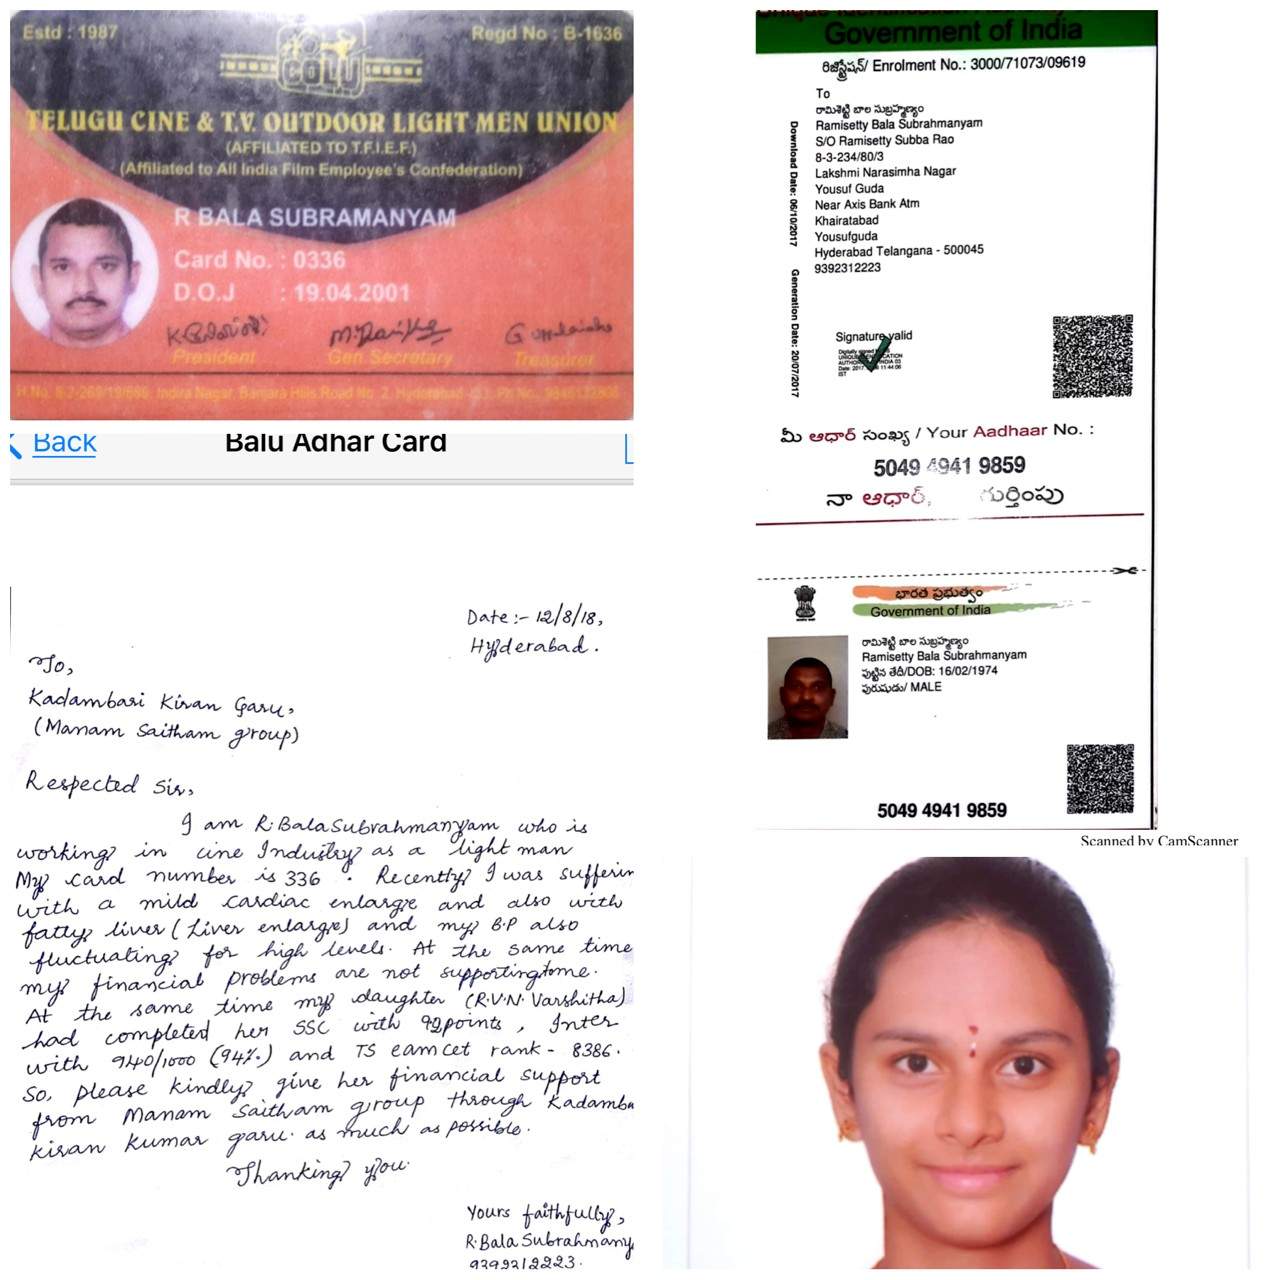 Estd : 1987
Regd No : B-1636
COLU
TELUGU CINE & T.V. OUTDOOR LIGHT MEN UNION
(AFFILIATED TO T.F.I.E.F.)
(Affiliated to All India Film Employee's Confederation)
R BALA SUBRAMANYAM
Card No. : 0336
D.O.J : 19.04.2001
President
Gen Secretary
Treasurer
Back
Balu Adhar Card
Date :- 12/8/18,
Hyderabad.
To,
Kadambari Kiran Garu,
(Manam Saitham group)
Respected Sir,
I am R.BalaSubrahmanyam who is
working in cine Industry as a light man
My card number is 336 . Recently I was sufferin
with a mild cardiac enlarge and also with
fatty liver (Liver enlarge) and my B.P also
fluctuating for high levels. At the same time
my financial problems are not supporting to me.
At the same time my daughter (R.V.N. Varshitha)
had completed her SSC with 92points, Inter
with 940/1000 (94%.) and TS eamcet rank - 8386.
So, please kindly give her financial support
from Manam Saitham group through Kadamba
Kiran Kumar garu. as much as possible.
Thanking you.
Yours faithfully,
R.Bala Subrahmany
9392312223.
Government of India
రిజిస్ట్రేషన్/ Enrolment No.: 3000/71073/09619
To
రామిశెట్టి బాల సుబ్రహ్మణ్యం
Ramisetty Bala Subrahmanyam
S/O Ramisetty Subba Rao
8-3-234/80/3
Lakshmi Narasimha Nagar
Yousuf Guda
Near Axis Bank Atm
Khairatabad
Yousufguda
Hyderabad Telangana - 500045
9392312223
Download Date: 06/10/2017
Generation Date: 20/07/2017
Signature valid
మీ ఆధార్ సంఖ్య / Your Aadhaar No. :
5049 4941 9859
నా ఆధార్, గుర్తింపు
భారత ప్రభుత్వం
Government of India
రామిశెట్టి బాల సుబ్రహ్మణ్యం
Ramisetty Bala Subrahmanyam
పుట్టిన తేదీ/DOB: 16/02/1974
పురుషుడు/ MALE
5049 4941 9859
Scanned by CamScanner